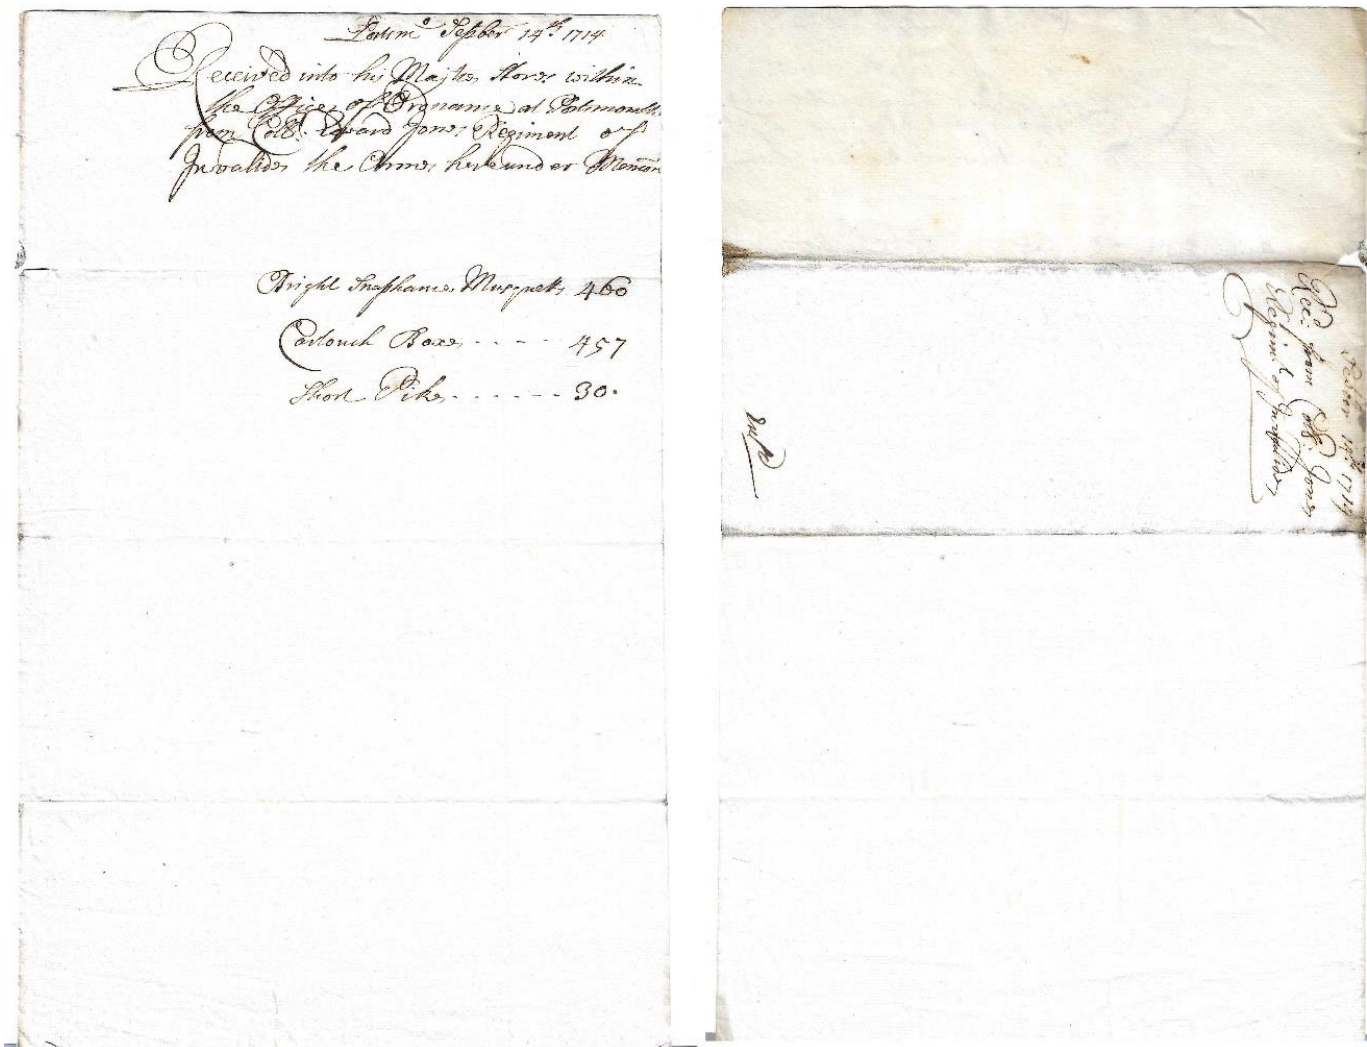 Portsmo Septber 14th 1714
Received into his Majtes Stores within
the Office of Ordnance at Portsmouth
from Collo Edward Jones Regiment of
Invalides the Armes hereunder Mencon
Bright Snaphance Musquets 460
Cartouch Boxes - - - - 457
Short Pikes - - - - - - 30.
Septbr 14th 1714
Rect from Collo Jones
Regimt of Invallides